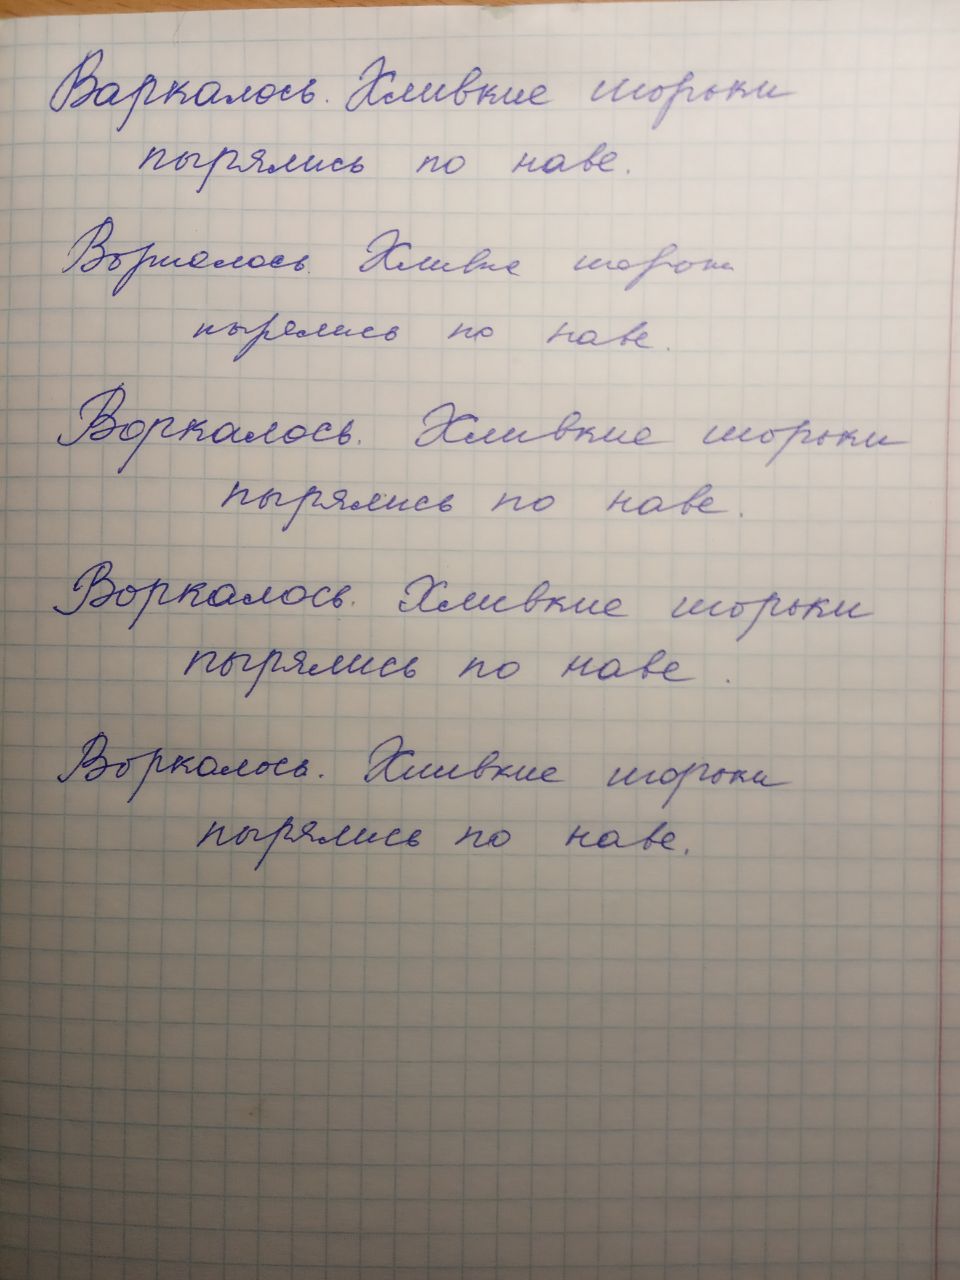 Варкалось. Хливкие шорьки
пырялись по наве.
Воркалось. Хливкие шорьки
пырялись по наве.
Воркалось. Хливкие шорьки
пырялись по наве.
Воркалось. Хливкие шорьки
пырялись по наве.
Воркалось. Хливкие шорьки
пырялись по наве.